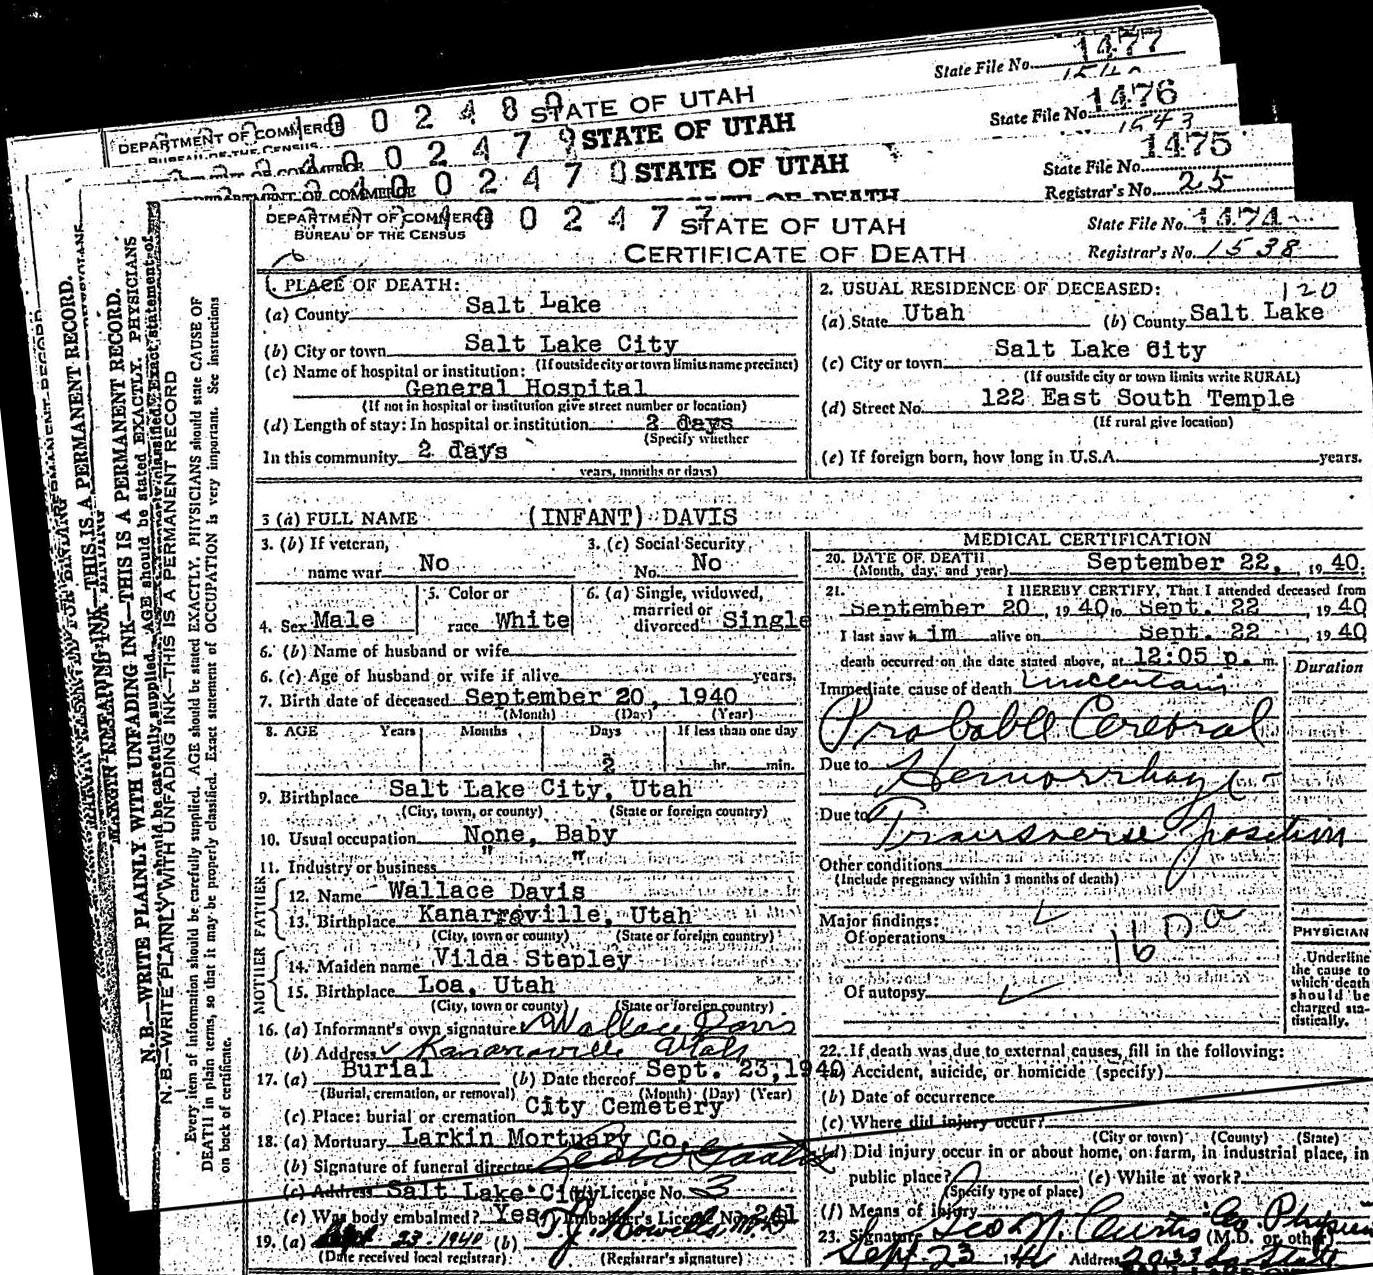 State File No. 1477
DEPARTMENT OF COMMERCE 0 0 2 4 8 0 STATE OF UTAH
BUREAU OF THE CENSUS
State File No. 1476
1543
0 0 2 4 7 9 STATE OF UTAH
State File No. 1475
Registrar's No. 25
0 0 2 4 7 STATE OF UTAH
DEPARTMENT OF COMMERCE 0 0 2 4 7 7 STATE OF UTAH
BUREAU OF THE CENSUS
CERTIFICATE OF DEATH
State File No. 1474
Registrar's No. 1538
1. PLACE OF DEATH:
(a) County Salt Lake
(b) City or town Salt Lake City
(If outside city or town limits name precinct)
(c) Name of hospital or institution:
General Hospital
(If not in hospital or institution give street number or location)
(d) Length of stay: In hospital or institution 2 days
(Specify whether
In this community 2 days
years, months or days)
2. USUAL RESIDENCE OF DECEASED: 120
(a) State Utah (b) County Salt Lake
(c) City or town Salt Lake City
(If outside city or town limits write RURAL)
(d) Street No. 122 East South Temple
(If rural give location)
(e) If foreign born, how long in U.S.A. years.
3 (a) FULL NAME (INFANT) DAVIS
3. (b) If veteran,
name war No
3. (c) Social Security
No. No
4. Sex Male
5. Color or
race White
6. (a) Single, widowed,
married or
divorced Single
6. (b) Name of husband or wife
6. (c) Age of husband or wife if alive years.
7. Birth date of deceased September 20, 1940
(Month) (Day) (Year)
8. AGE Years Months Days If less than one day
2 hr. min.
9. Birthplace Salt Lake City, Utah
(City, town, or county) (State or foreign country)
10. Usual occupation None, Baby
11. Industry or business " "
FATHER
12. Name Wallace Davis
13. Birthplace Kanarraville, Utah
(City, town or county) (State or foreign country)
MOTHER
14. Maiden name Vilda Stapley
15. Birthplace Loa, Utah
(City, town or county) (State or foreign country)
16. (a) Informant's own signature Wallace Davis
(b) Address Kanarraville Utah
17. (a) Burial (b) Date thereof Sept. 23, 1940
(Burial, cremation, or removal) (Month) (Day) (Year)
(c) Place: burial or cremation City Cemetery
18. (a) Mortuary Larkin Mortuary Co.
(b) Signature of funeral director
(c) Address Salt Lake City License No. 3
(e) Was body embalmed? Yes Embalmer's License No. 241
19. (a) Sept 23 1940 (b) T.J. Howells, M.D.
(Date received local registrar) (Registrar's signature)
MEDICAL CERTIFICATION
20. DATE OF DEATH
(Month, day, and year) September 22, 1940.
21. I HEREBY CERTIFY, That I attended deceased from
September 20 1940 to Sept. 22, 1940
I last saw h im alive on Sept. 22, 1940
death occurred on the date stated above, at 12:05 p. m.
Duration
Immediate cause of death uncertain
Probable Cerebral
Due to Hemorrhage -
Due to Transverse position
Other conditions
(Include pregnancy within 3 months of death)
Major findings:
Of operations
160a
Of autopsy
PHYSICIAN
Underline
the cause to
which death
should be
charged sta-
tistically.
22. If death was due to external causes, fill in the following:
(a) Accident, suicide, or homicide (specify)
(b) Date of occurrence
(c) Where did injury occur?
(City or town) (County) (State)
(d) Did injury occur in or about home, on farm, in industrial place, in
public place? (e) While at work?
(Specify type of place)
(f) Means of injury
23. Signature Geo N. Curtis Co. Physician (M.D. or other)
Sept 23 1940 Address 2033 So. State
N. B.—WRITE PLAINLY WITH UNFADING INK—THIS IS A PERMANENT RECORD.
N.B.—WRITE PLAINLY WITH UNFADING INK—THIS IS A PERMANENT RECORD
Every item of information should be carefully supplied. AGE should be stated EXACTLY. PHYSICIANS should state CAUSE OF
DEATH in plain terms, so that it may be properly classified. Exact statement of OCCUPATION is very important. See instructions
on back of certificate.